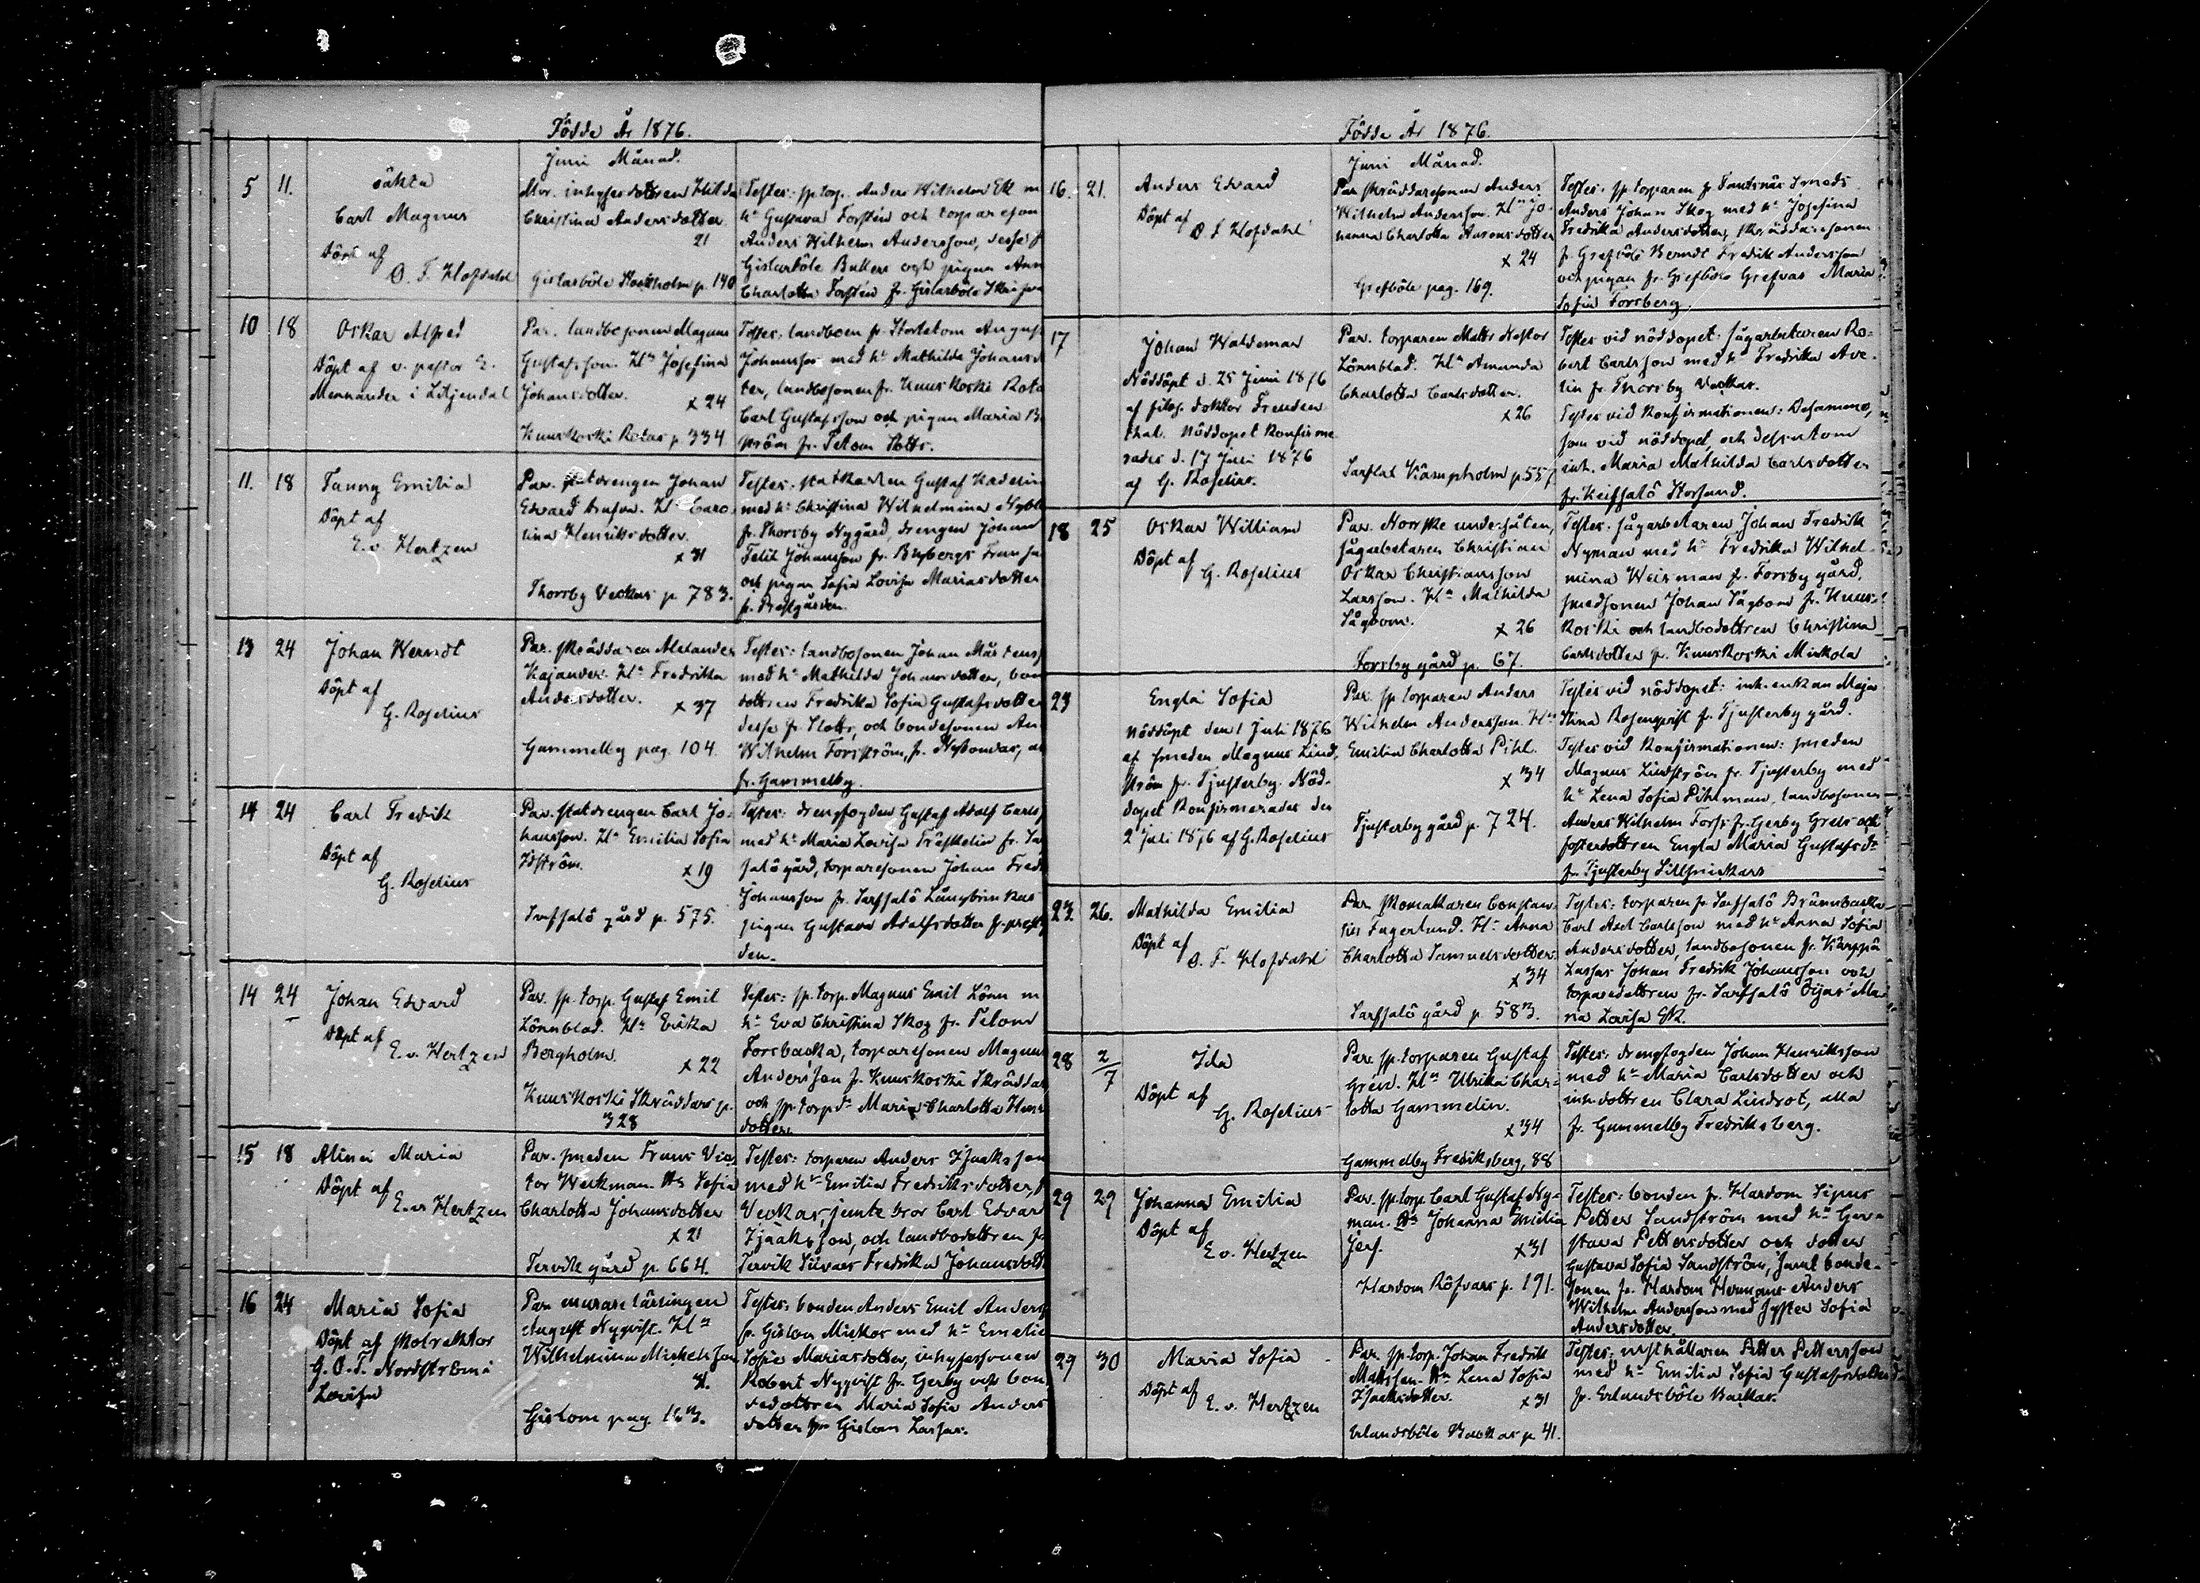 Födde År 1876.
Juni Månad.
5 11.
oäkta
Carl Magnus
Döpt af
O. F. Hofdahl
Mor. inhysesdottren Hilda
Christina Andersdotter
21
Gislarböle Stockholm p. 140
Testes: sp. torp. Anders Wilhelm Ek m
hu Gustava Forstén och torparesonen
Anders Wilhelm Andersson, desse f
Gislarböle Bullers och pigan Ann
Charlotta Forstén fr. Gislarböle
10 18
Oskar Alfred
Döpt af v. pastor E.
Mennander i Liljendal
Par. landbosonen Magnus
Gustafsson. Hn Josefina
Johansdotter.
x 24
Kuuskoski Rotas p. 334
Testes: landboen fr Hortekom August
Johansson med hu Mathilda Johansd
ter, landbosonen fr. Kuuskoski Rota
Carl Gustafsson och pigan Maria B
ström fr. Petom Hotts.
11. 18
Fanny Emilia
Döpt af
E. v. Hertzen
Par. statdrengen Johan
Edvard Hn Caro
lina Henriksdotter
x 31
Thorsby Veckas p 783.
Testes: statkarlen Gustaf
med hu Christina Wilhelmina
fr. Thorsby Nygård, drengen Johan
Felix Johansson fr.
och pigan Sofia Lovisa Mariasdotter
fr. Prestgården.
13 24
Johan Werndt
Döpt af
G. Roselius
Par. skräddaren Alexander
Kajander. Hn Fredrika
Andersdotter.
x 37
Gammelby pag. 104.
Testes: landbosonen Johan Mårtenss
med hu Mathilda Johansdotter, bon
dottren Fredrika Sofia Gustafsdotter
desse fr Hotts, och bondesonen An
Wilhelm Forsström, fr. Nystomas, al
fr. Gammelby.
14 24
Carl Fredrik
Döpt af
G. Roselius
Par. statdrengen Carl Jo-
hansson. Hn Emilia Sofia
Edström.
x 19
Sarfsalö gård p. 575.
Testes: drengfogden Gustaf Adolf Carls
med hu Maria Lovisa Träskelin fr. Sa
salö gård, torparesonen Johan Fred
Johansson fr. Sarfsalö Långbrinkas
pigan Gustava Adolfsdotter fr. prestg
den.
14 24
Johan Edvard
Döpt af
E. v. Hertzen
Par. sp. torp. Gustaf Emil
Lönnblad. Hn Erika
Bergholm.
x 22
Kuuskoski Skräddars p.
328
Testes: sp. torp. Magnus Emil Lönn m
hu Eva Christina Skog fr. Petom
Forsbacka, torparesonen Magnus
Andersson fr. Kuuskoski Skräddar
och sp. torp.dr Maria Charlotta
dotter.
15 18
Alina Maria
Döpt af
E. v. Hertzen
Par. smeden Frans Vic-
tor Weckman. Hn Sofia
Charlotta Johansdotter
x 21
Tervik gård p. 664.
Testes: torparen Anders Isaksson
med hu Emilia Fredriksdotter, f
Veckas, jemte bror Carl Edvard
Isaaksson, och landbodottren fr
Tervik Silvars Fredrika Johansdott
16 24
Maria Sofia
Döpt af skolrektor
G. O. T. Nordström i
Lovisa
Par. murarelärlingen
August Nyqvist. Hn
Wilhelmina Mickelsson
31.
Gislom pag. 163.
Testes: bonden Anders Emil Anders
fr. Gislom Mickos med hu Emelie
Sofia Mariasdotter, inhysessonen
Robert Nyqvist fr. Gerby och bon
dedottren Maria Sofia Anders
dotter från Gislom Lassas.
Födde År 1876.
Juni Månad.
16. 21.
Anders Edvard
Döpt af
O F Hofdahl
Par. skräddaresonen Anders
Wilhelm Andersson. Hn Jo-
hanna Charlotta Aaronsdotter
x 24
Grefböle pag. 169.
Testes: sp. torparen fr Tantnäs Smeds
Anders Johan Skog med hu Josefina
Fredrika Andersdotter, skräddaresonen
fr. Grefböle Berndt Fredrik Andersson
och pigan fr. Grefböle Grefvas Maria
Sofia Forsberg.
17
Johan Waldemar
Nöddöpt d. 25 Juni 1876
af filos. doktor Freuden
thal. Nöddopet konfirme
rades d. 17 Juli 1876
af G. Roselius.
Par. torparen Matts Nestor
Lönnblad. Hn Amanda
Charlotta Carlsdotter.
x 26
Sarflax Kämpholm p. 557
Testes vid nöddopet: sågarbetaren Ro-
bert Carlsson med hu Fredrika Ave-
lin fr. Thorsby Veckas.
Testes vid konfirmationen: Desamme,
som vid nöddopet, och dessutom
inh. Maria Mathilda Carlsdotter
fr. Keitsalö Storsund.
18 25
Oskar William
Döpt af
G. Roselius
Par. Norrske undersåten,
sågarbetaren Christian
Oskar Christiansson
Larsson. Hn Mathilda
Sågbom.
x 26
Forsby gård p. 67.
Testes: sågarbetaren Johan Fredrik
Nyman med hu Fredrika Wilhel-
mina Weisman fr. Forsby gård,
smedsonen Johan Sågbom fr. Kuus-
koski och landbodottren Christina
Carlsdotter fr. Kuuskoski Mickola
23
Engla Sofia
Nöddöpt den 1 Juli 1876
af smeden Magnus Lind-
ström fr. Tjusterby. Nöd-
dopet konfirmerades den
2 Juli 1876 af G. Roselius
Par. sp. torparen Anders
Wilhelm Andersson. Hn
Emilia Charlotta Pihl.
x 34
Tjusterby gård p. 724.
Testes vid nöddopet: inh. enkan Maja
Stina Rosenqvist fr. Tjusterby gård.
Testes vid konfirmationen: smeden
Magnus Lindström fr. Tjusterby med
hu Lena Sofia Pihlman, landbosonen
Anders Wilhelm Forss fr. Gerby Grels och
fosterdottren Engla Maria Gustafsdr
fr. Tjusterby
23. 26.
Mathilda Emilia
Döpt af
O. F. Hofdahl
Par. skomakaren Constan-
tin Fagerlund. Hn Anna
Charlotta Samuelsdotter.
x 34
Sarfsalö gård p. 583.
Testes: torparen fr Sarfsalö Brännbacka
Carl Axel Carlsson med hu Anna Sofia
Andersdotter, landbosonen fr. Kärppä
Lassas Johan Fredrik Johansson och
torparedottren fr. Sarfsalö Öijas Ma-
ria Lovisa Ek.
28 2/7
Ida
Döpt af
G. Roselius
Par. sp. torparen Gustaf
Grén. Hn Ulrika Char-
lotta Gammelin.
x 34
Gammelby Fredriksberg, 88
Testes: drengfogden Johan Henriksson
med hu Maria Carlsdotter och
inh. dottren Clara Lindrot, alla
fr. Gammelby Fredriksberg.
29 29
Johanna Emilia
Döpt af
E. v. Hertzen
Par. sp. torp. Carl Gustaf Ny-
man. Hn Johanna Emilia
Jerf.
x 31
Hardom Röfvars p. 191.
Testes: bonden fr. Hardom Sipus
Petter Sandström med hu Gu-
stava Pettersdotter och dotter
Gustava Sofia Sandström, samt bonde-
sonen fr. Hardom Hermans Anders
Wilhelm Andersson med syster Sofia
Andersdotter.
29 30
Maria Sofia
Döpt af
E. v. Hertzen
Par. sp. torp. Johan Fredrik
Mattsson. Hn Lena Sofia
Isaksdotter.
x 31
Erlandsböle Backas p. 41.
Testes: Petter Pettersson
med hu Emilia Sofia Gustafsdotter
fr. Erlandsböle Backas.